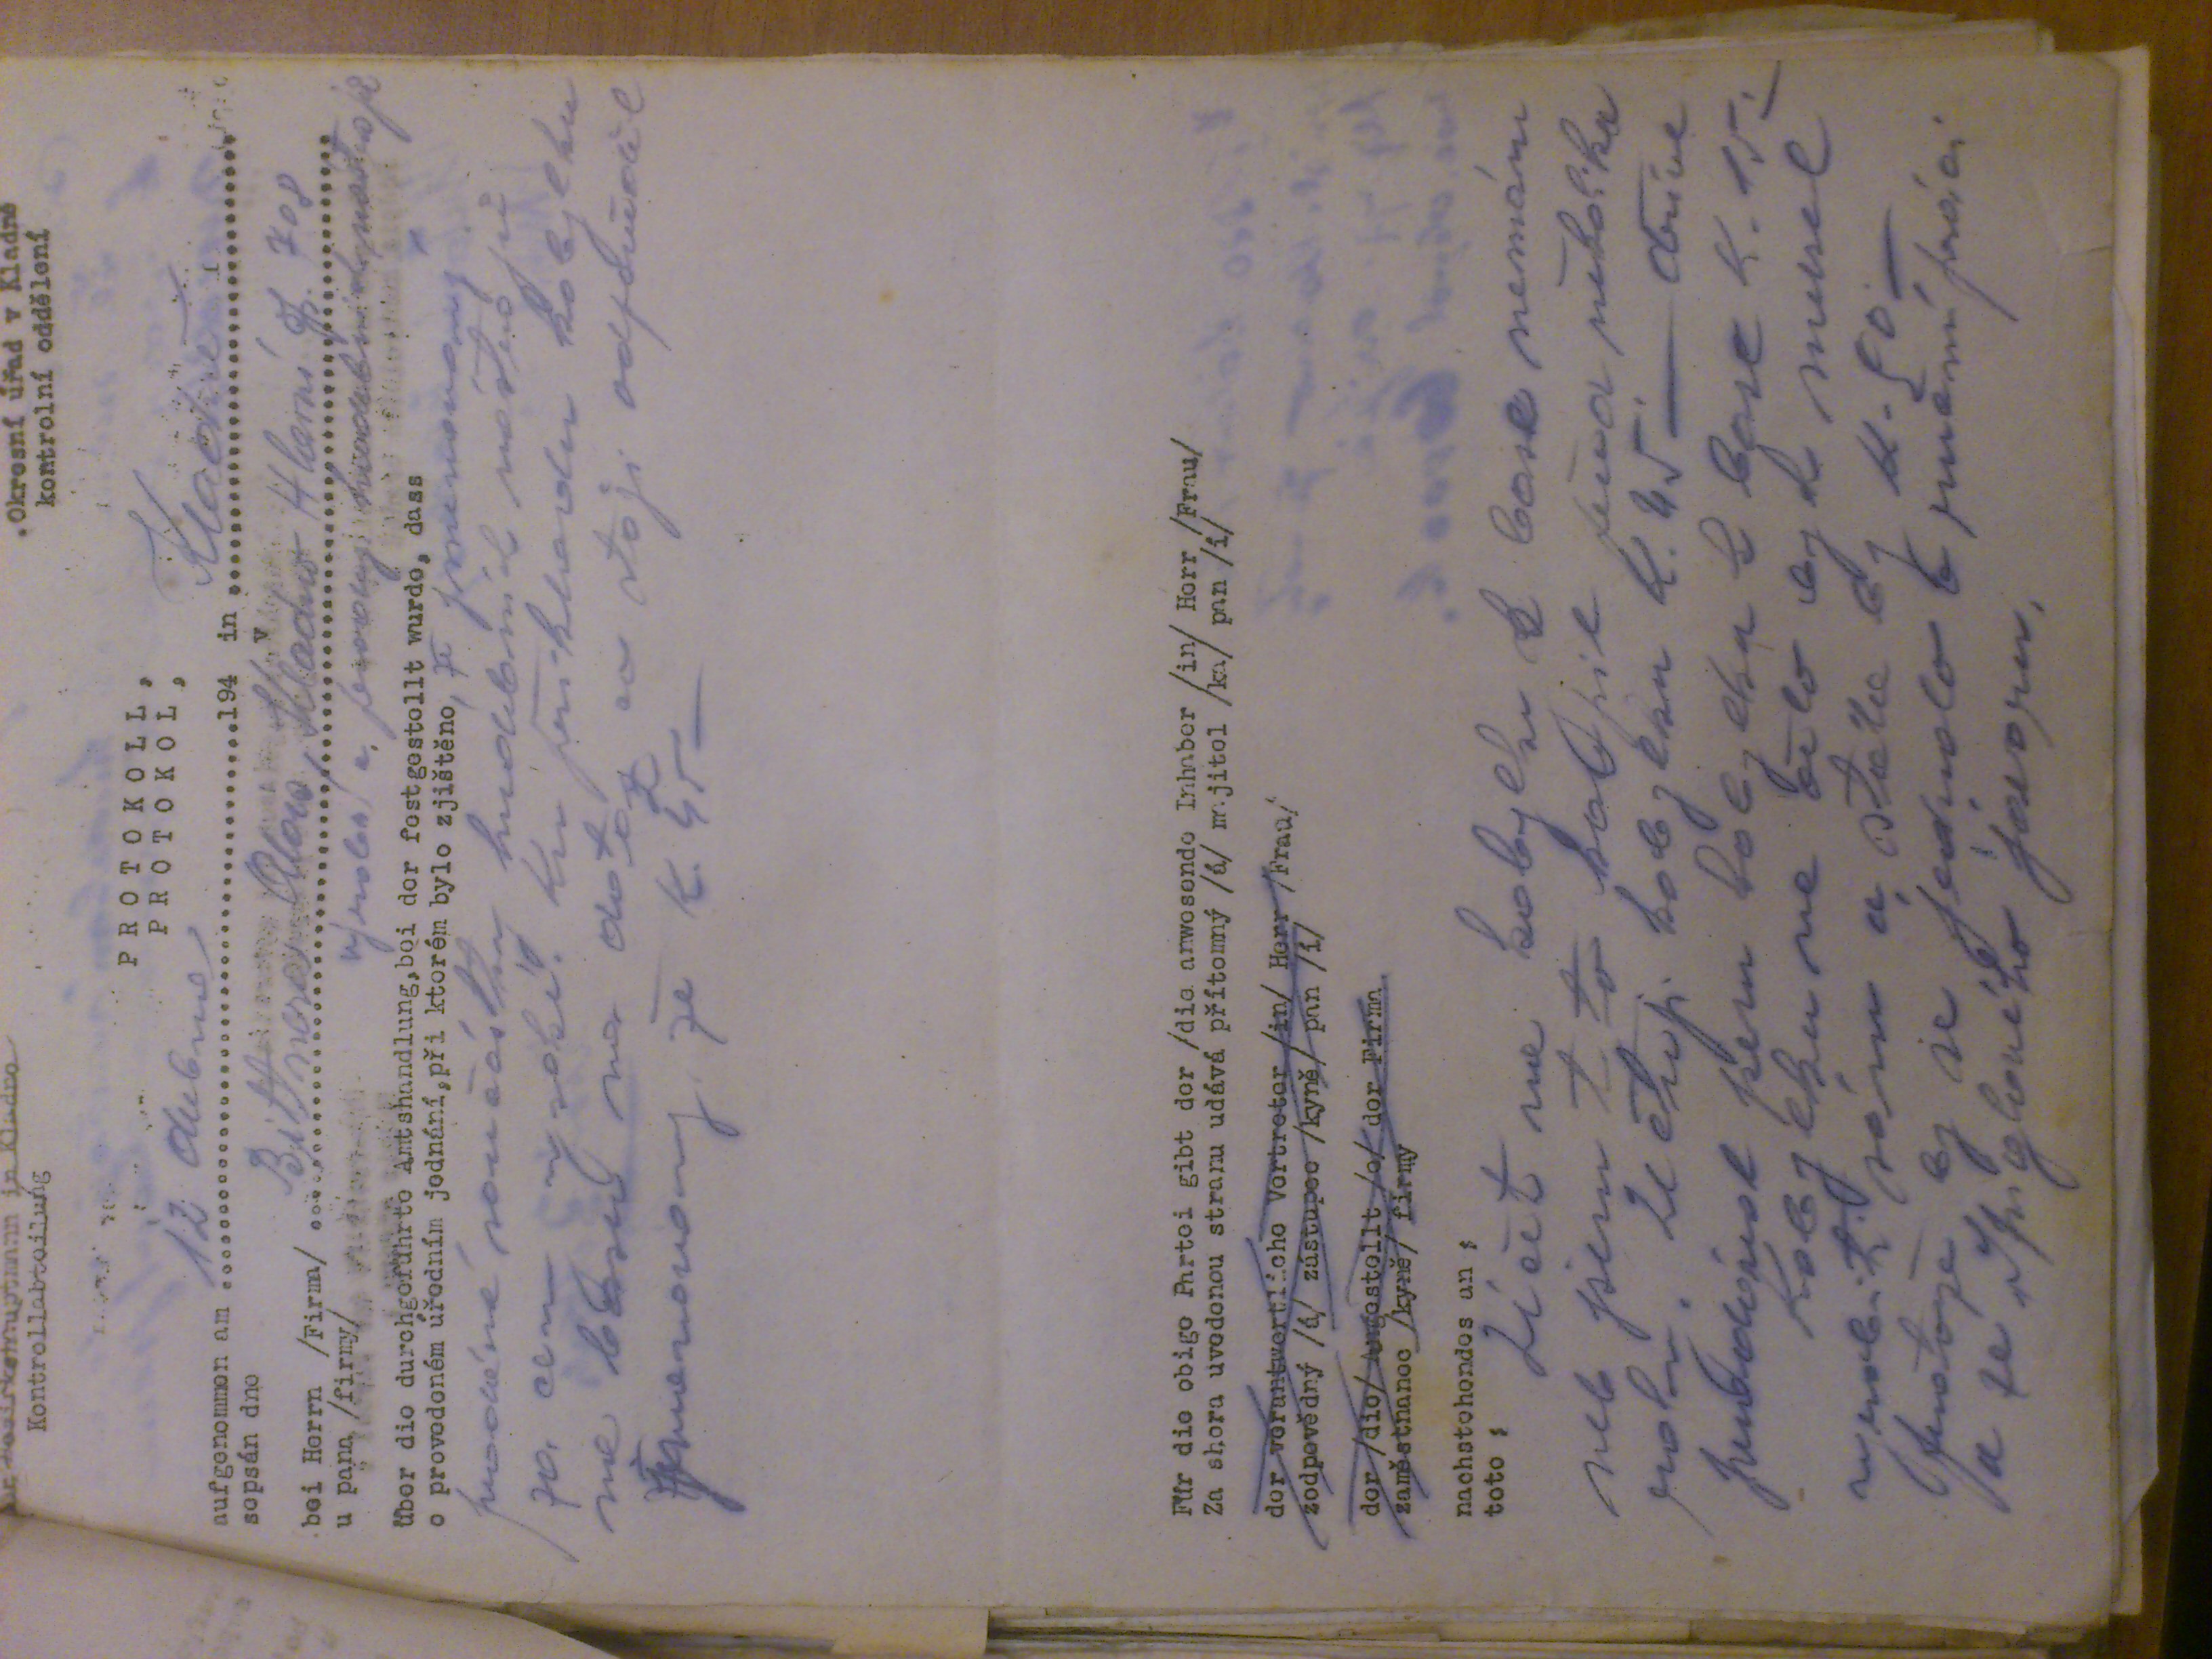 Der Bezirkshauptmann in Kladno
Kontrollabteilung
Okresní úřad v Kladně
kontrolní oddělení
PROTOKOLL,
PROTOKOL,
aufgenommen am 12 dubna 194 in Kladně
sepsán dne v
bei Herrn /Firma/ Bittnera Kladno Hlavní čp. 708
u pana /firmy/ výroba a prodej hudebních nástrojů
über die durchgeführte Amtshandlung, bei der festgestellt wurde, dass
o provedeném úředním jednání, při kterém bylo zjištěno, že jmenovaný
prodává součástky hudebních nástrojů
za cenu vysoké. Ku příkladu kobylku
na basu na dotaz co stojí odpověděl
jmenovaný že K. 45 —
Für die obige Partei gibt der /die anwesende Inhaber /in/ Herr /Frau/
Za shora uvedenou stranu udává přítomný /á/ majitel /ka/ pan /í/
der verantwortliche Vertreter /in/ Herr /Frau/
zodpovědný /á/ zástupce /kyně/ pan /í/
der /die/ Angestellt /e/ der Firma
zaměstnanec /kyně/ firmy
nachstehendes an :
toto :
Účet na kobylku k base nemám
neb jsem tuto koupil před několika
roky. Účtuji kobylku K. 45 — dříve
prodával jsem kobylku k base K. 15 —
Kobylku na čelo bych musel
vyrobiti sám a stála by K. 50 —
protože by se jednalo o ruční práci
a ze Špiglového javoru.